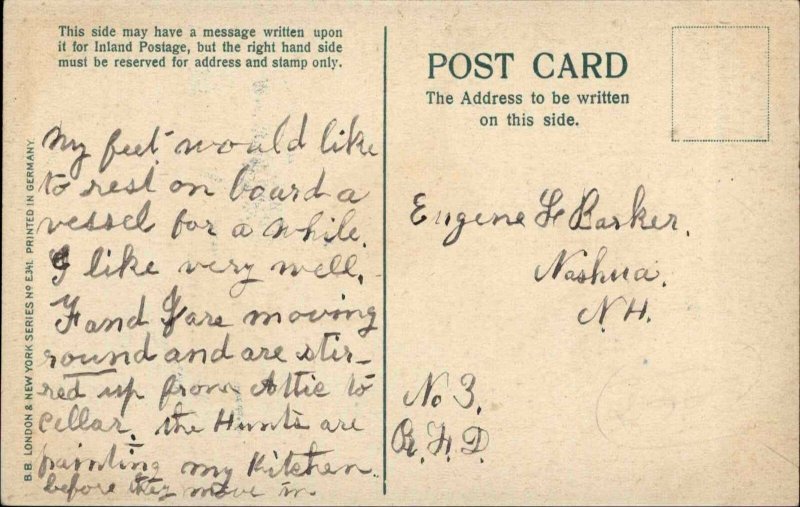 This side may have a message written upon
it for Inland Postage, but the right hand side
must be reserved for address and stamp only.
My feet would like
to rest on board a
vessel for a while.
I like very well.
F and J are moving
round and are stir-
red up from Attic to
cellar. the Hunts are
painting my Kitchen
before they move in.
B.B. LONDON & NEW YORK SERIES No E341. PRINTED IN GERMANY.
POST CARD
The Address to be written
on this side.
Eugene F Barker.
Nashua.
N.H.
No 3.
R.F.D.